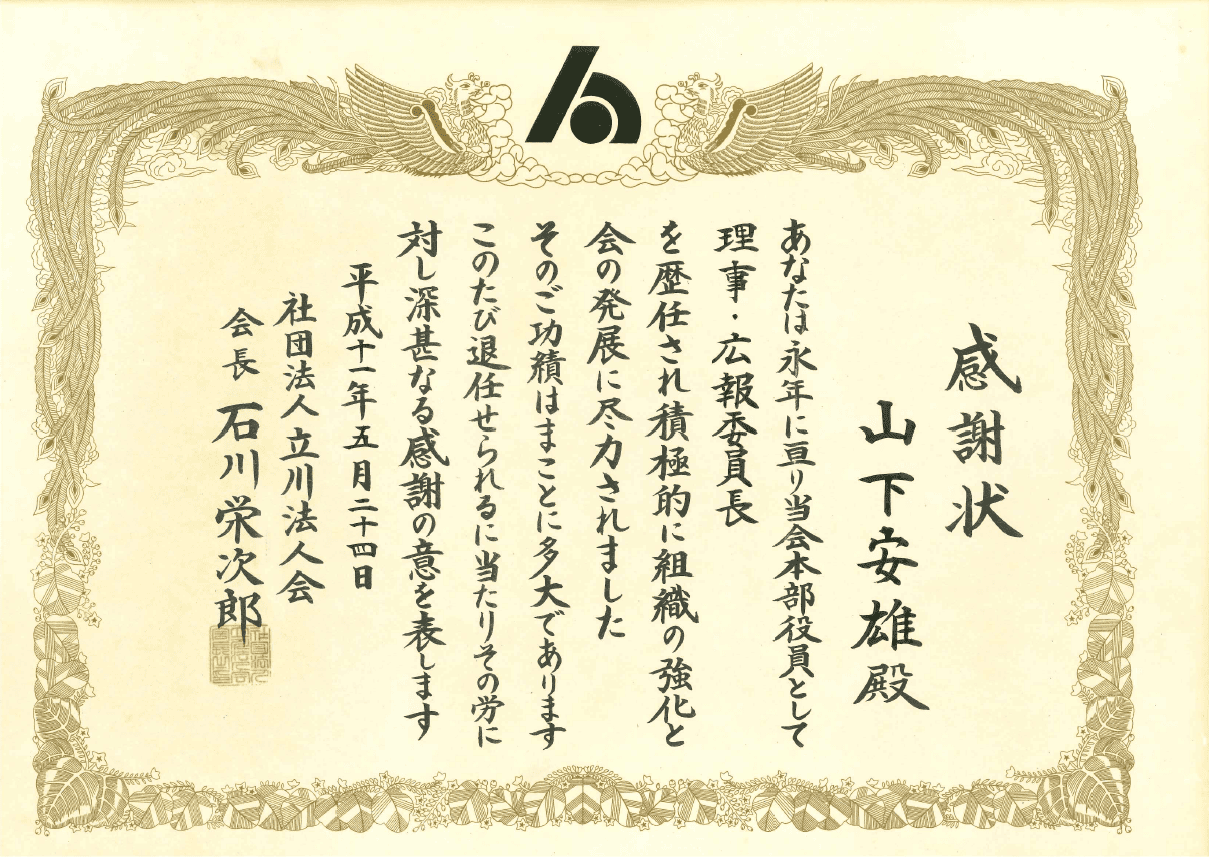 感謝状
山下安雄殿
あなたは永年に亘り当会本部役員として
理事・広報委員長
を歴任され積極的に組織の強化と
会の発展に尽力されました
そのご功績はまことに多大であります
このたび退任せられるに当たりその労に
対し深甚なる感謝の意を表します
平成十一年五月二十四日
社団法人立川法人会
会長 石川栄次郎